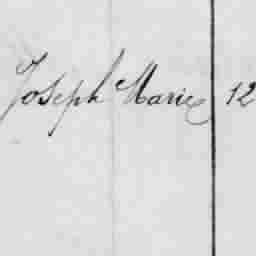 Joseph Marie 12